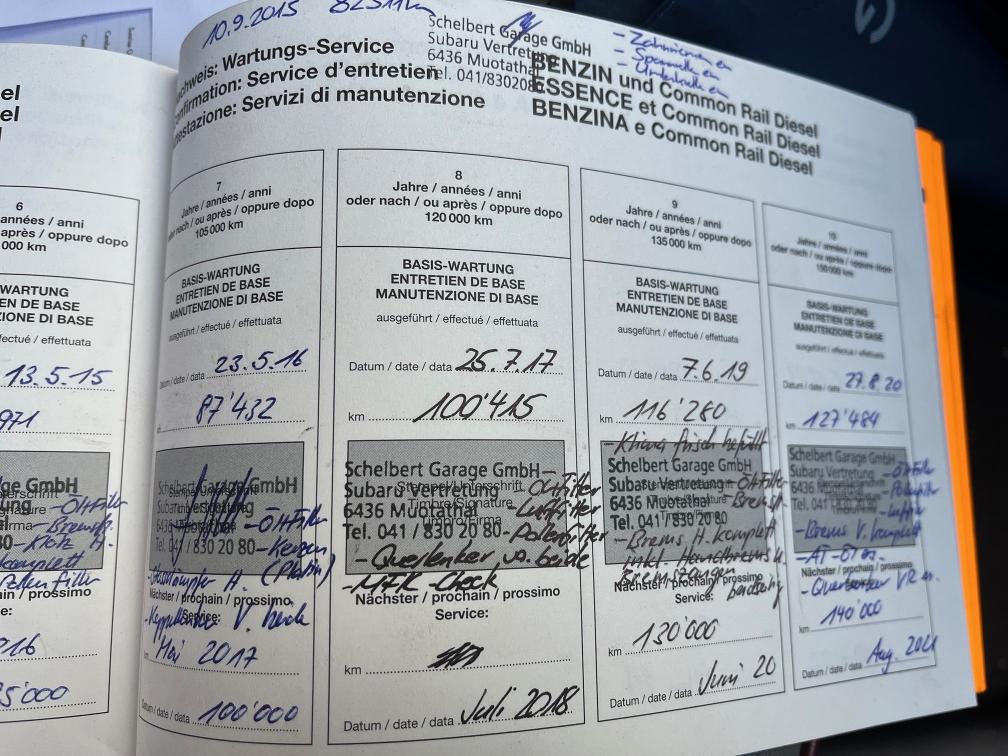 10.9.2015
Schelbert Garage GmbH
Subaru Vertretung
6436 Muotathal
Tel. 041/830208
- Zahnriemen
chweis: Wartungs-Service
nfirmation: Service d'entretien
testazione: Servizi di manutenzione
BENZIN und Common Rail Diesel
ESSENCE et Common Rail Diesel
BENZINA e Common Rail Diesel
el
el
l
6
années / anni
ou après / oppure dopo
000 km
WARTUNG
EN DE BASE
ZIONE DI BASE
fectué / effettuata
13.5.15
971
ge GmbH
- Öl+Filter
- Bremsfl.
- Klotz H.
komplett
Pollenfilter
/ prochain / prossimo
e:
5'000
7
Jahre / années / anni
oder nach / ou après / oppure dopo
105 000 km
BASIS-WARTUNG
ENTRETIEN DE BASE
MANUTENZIONE DI BASE
ausgeführt / effectué / effettuata
Datum / date / data 23.5.16
87'432
Schelbert Garage GmbH
Tel. 041 / 830 20 80
- Öl+Filter
- Kerzen
(Platin)
Nächster / prochain / prossimo
Service:
km Mai 2017
Datum / date / data 100'000
8
Jahre / années / anni
oder nach / ou après / oppure dopo
120 000 km
BASIS-WARTUNG
ENTRETIEN DE BASE
MANUTENZIONE DI BASE
ausgeführt / effectué / effettuata
Datum / date / data 25.7.17
km 100'415
Schelbert Garage GmbH
Stempel/Unterschrift
Subaru Vertretung
Timbre/Signature
6436 Muotathal
Timbro/Firma
Tel. 041 / 830 20 80
- Ölfilter
- Luftfilter
- Pollenfilter
- Querlenker v.a. beide
- MFK-Check
Nächster / prochain / prossimo
Service:
km
Datum / date / data Juli 2018
9
Jahre / années / anni
oder nach / ou après / oppure dopo
135 000 km
BASIS-WARTUNG
ENTRETIEN DE BASE
MANUTENZIONE DI BASE
ausgeführt / effectué / effettuata
Datum / date / data 7.6.19
km 116'280
- Klima frisch befüllt
Schelbert Garage GmbH
Subaru Vertretung
6436 Muotathal
Tel. 041 / 830 20 80
- Öl+Filter
- Bremsfl.
- Brems H. komplett
inkl.
Nächster / prochain / prossimo
Service:
km 130'000
Datum / date / data Juni 20
10
Jahre / années / anni
oder nach / ou après / oppure dopo
150 000 km
BASIS-WARTUNG
ENTRETIEN DE BASE
MANUTENZIONE DI BASE
ausgeführt / effectué / effettuata
Datum / date / data 27.8.20
km 127'484
Schelbert Garage GmbH
Subaru Vertretung
6436 Muotathal
Tel. 041 / 830 20 80
- Öl+Filter
- Pollenfilter
- Brems V. komplett
- AT-Öl
- Querlenker VR
Nächster / prochain / prossimo
Service:
km 140'000
Datum / date / data Aug. 2021